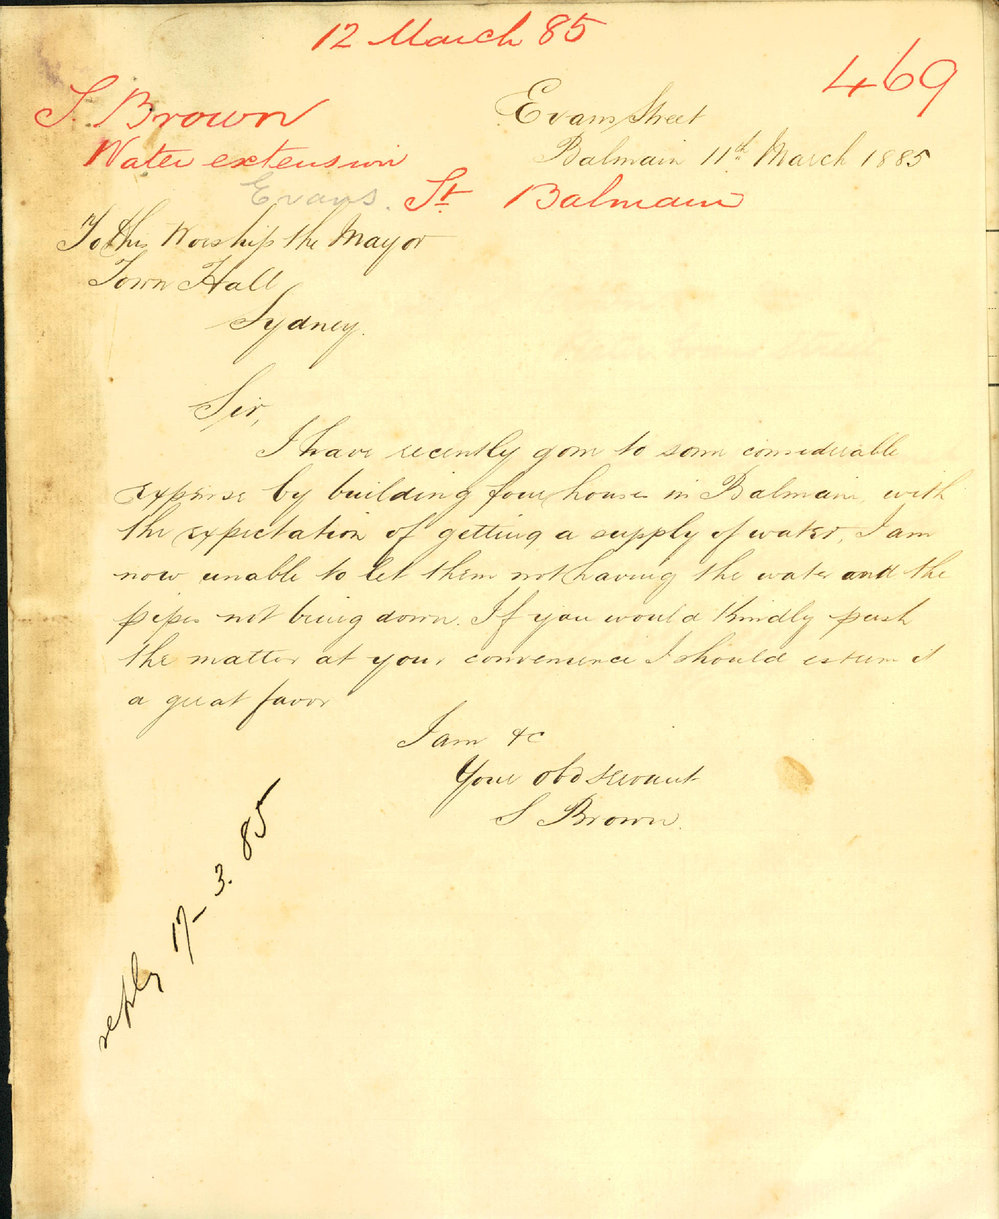 12 March 85
469
S. Brown
Water extension
Evans. St Balmain
Evans Street
Balmain 11th March 1885
To His Worship the Mayor
Town Hall
Sydney.
Sir,
I have recently gone to some considerable
expense by building four houses in Balmain, with
the expectation of getting a supply of water, I am
now unable to let them not having the water and the
pipes not being down. If you would kindly push
the matter at your convenience I should esteem it
a great favor
I am &c
Your obd servant
S Brown.
reply 17-3.85